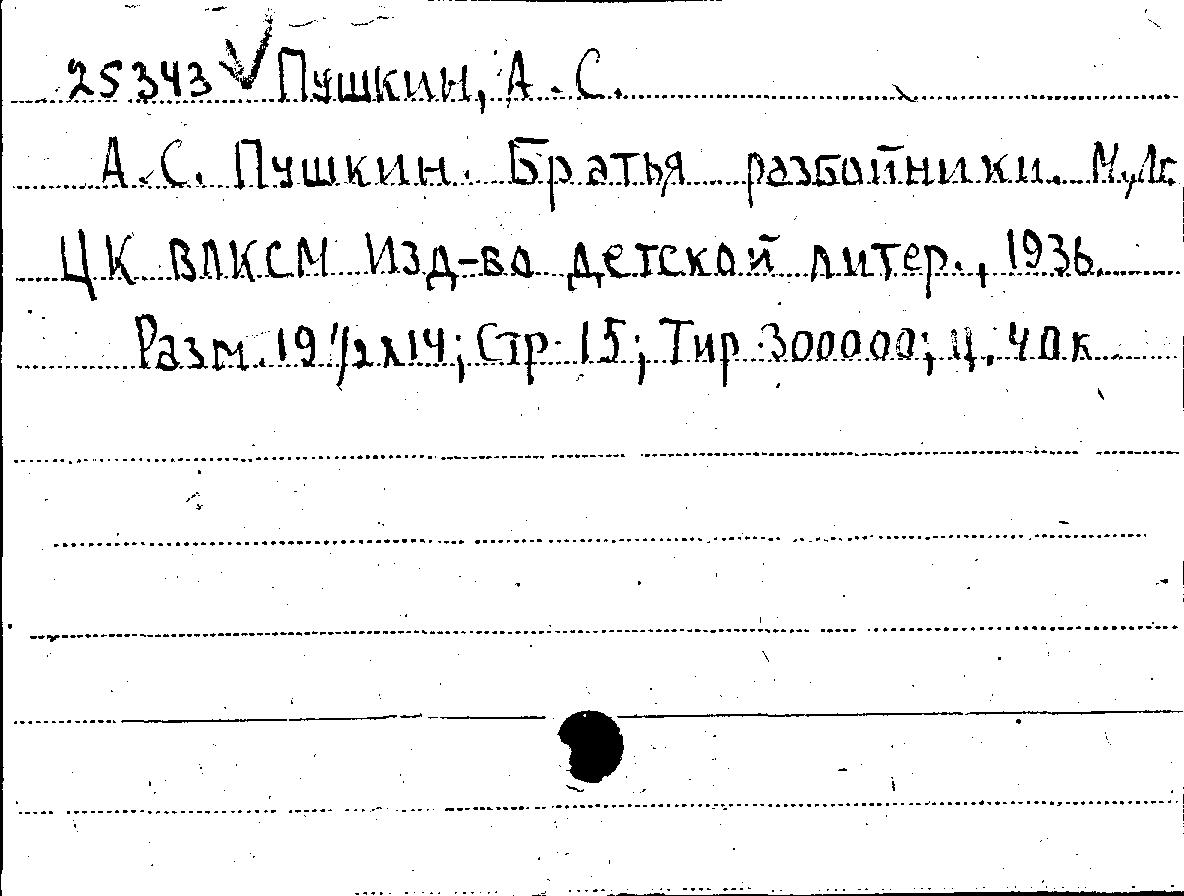 25343 Пушкин, А. С.
А. С. Пушкин. Братья разбойники. М., Лг.
ЦК ВЛКСМ Изд-во детской литер., 1936.
Разм. 19 1/2 x 14; Стр. 15; Тир. 300000; Ц. 40 к